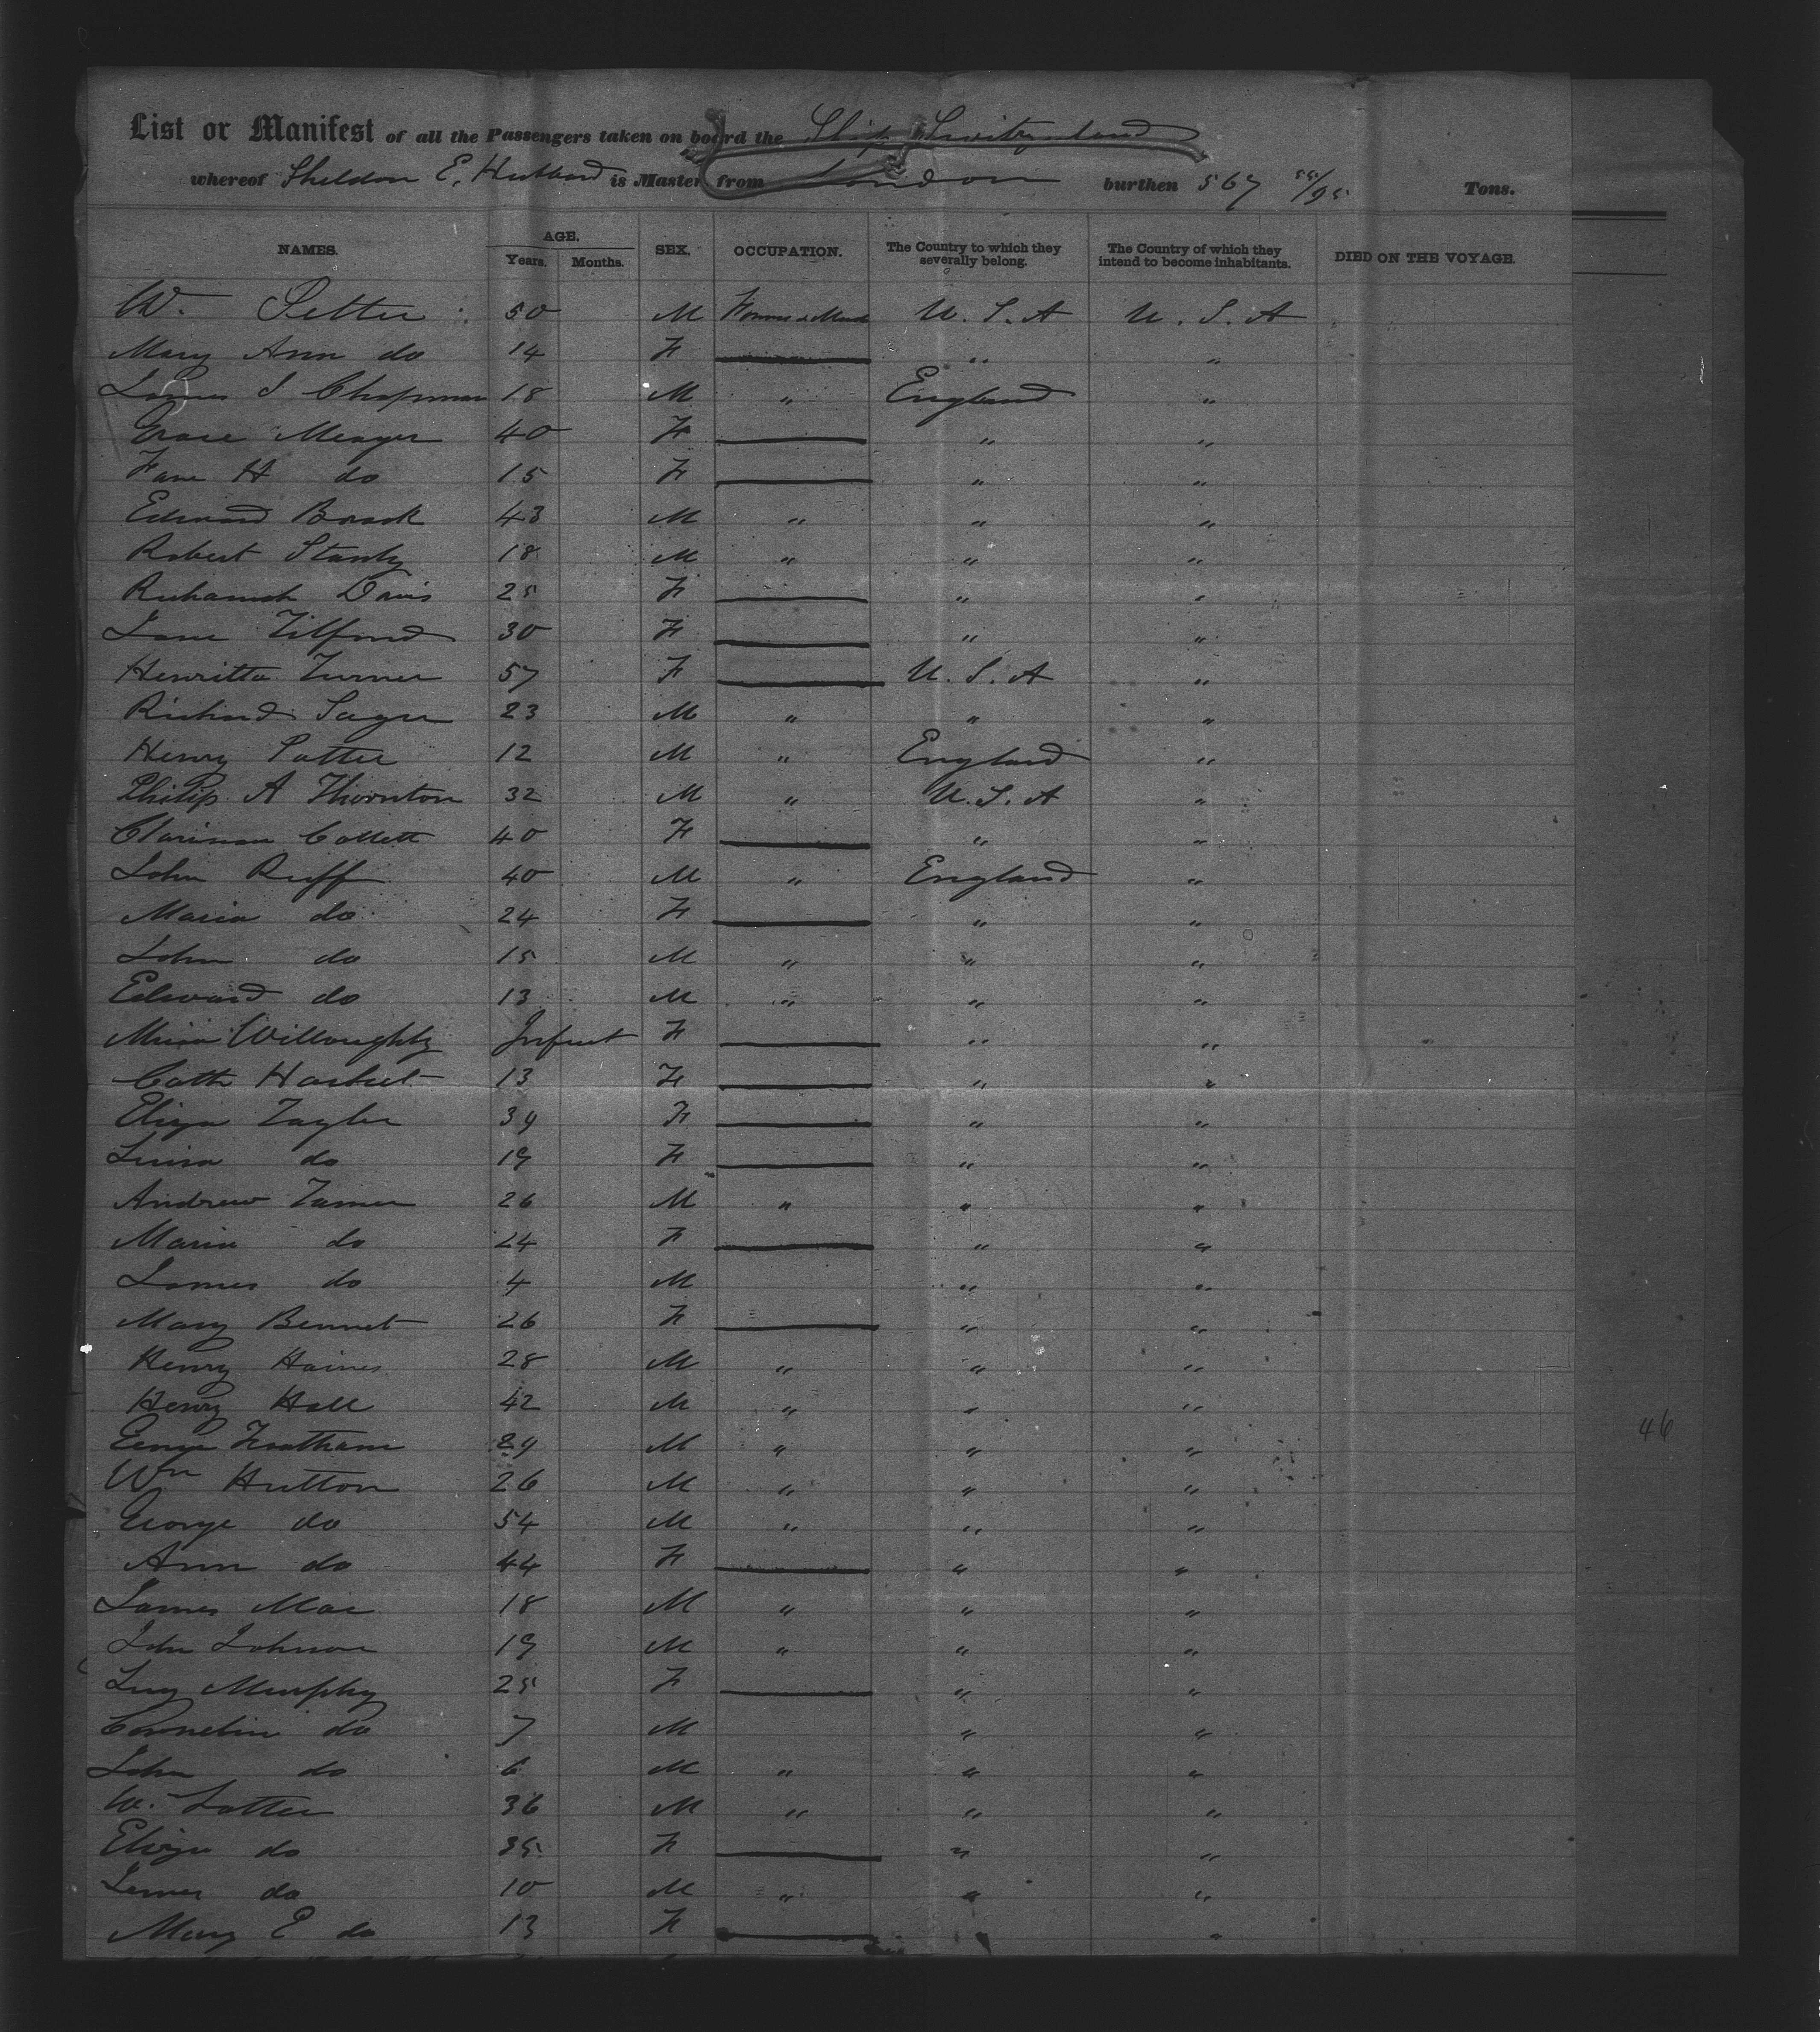 List or Manifest of all the Passengers taken on board the Ship Switzerland
whereof Sheldon E. Hubbard is Master from London burthen 567 55/95 Tons.
NAMES. AGE. Years. Months. SEX. OCCUPATION. The Country to which they severally belong. The Country of which they intend to become inhabitants. DIED ON THE VOYAGE.
W. 50 M U.S.A U.S.A
Mary Ann do 14 F " "
James S Chapman 18 M " England "
Grace Meager 40 F " "
Jane H do 15 F " "
Edward 43 M " " "
Robert Stanly 18 M " " "
Davis 25 F " "
Jane Tilford 30 F " "
Henritta Turner 57 F U.S.A "
Richard 23 M " " "
Henry Potter 12 M " England "
Philip A Thornton 32 M " U.S.A "
Collett 40 F " "
John Ruff 40 M " England "
Maria do 24 F " "
John do 15 M " " "
Edward do 13 M " " "
Willoughby Infant F " "
Cath 13 F " "
Eliza Tayler 39 F " "
Luisa do 19 F " "
Andrew Turner 26 M " " "
Maria do 24 F " "
James do 4 M " "
Mary Bennet 26 F " "
Henry Haines 28 M " " "
Henry Hall 42 M " " "
29 M " " "
Wm Hutton 26 M " " "
George do 54 M " " "
Ann do 44 F " "
James 18 M " " "
John Johnson 19 M " " "
Lucy Murphy 25 F " "
do 7 M " "
John do 6 M " " "
W. 36 M " " "
Eliza do 35 F " "
James do 10 M " " "
Mary E do 13 F " "
46